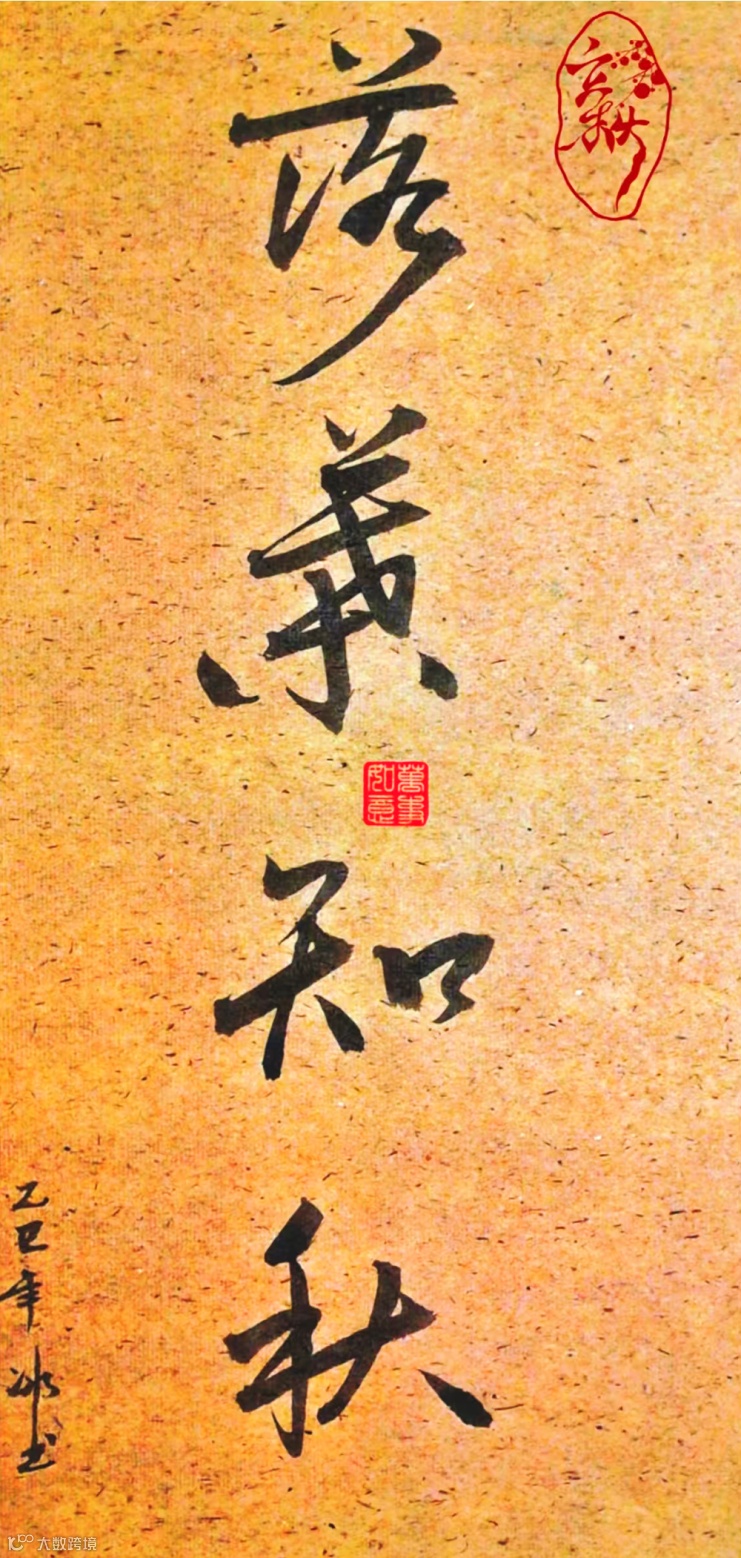 落葉知秋
立秋
萬事
如意
乙巳年冰书
大数跨境